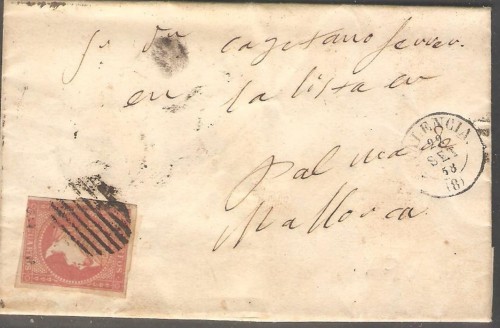 Sr Dn Cayetano Ferrer
en la lista en
Palma de
Mallorca
VALENCIA
22
SET
58
(8)